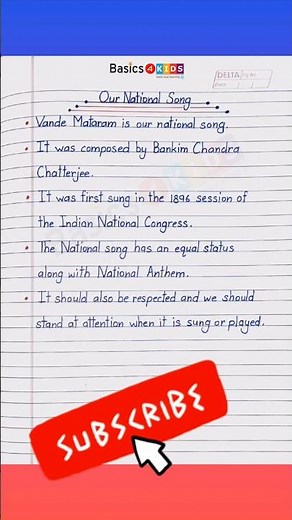 Basics 4 KIDS
DELTA
Our National Song
Vande Mataram is our national song.
It was composed by Bankim Chandra
Chatterjee.
It was first sung in the 1896 session of
the Indian National Congress.
The National song has an equal status
along with National Anthem.
It should also be respected and we should
stand at attention when it is sung or played.
SUBSCRIBE